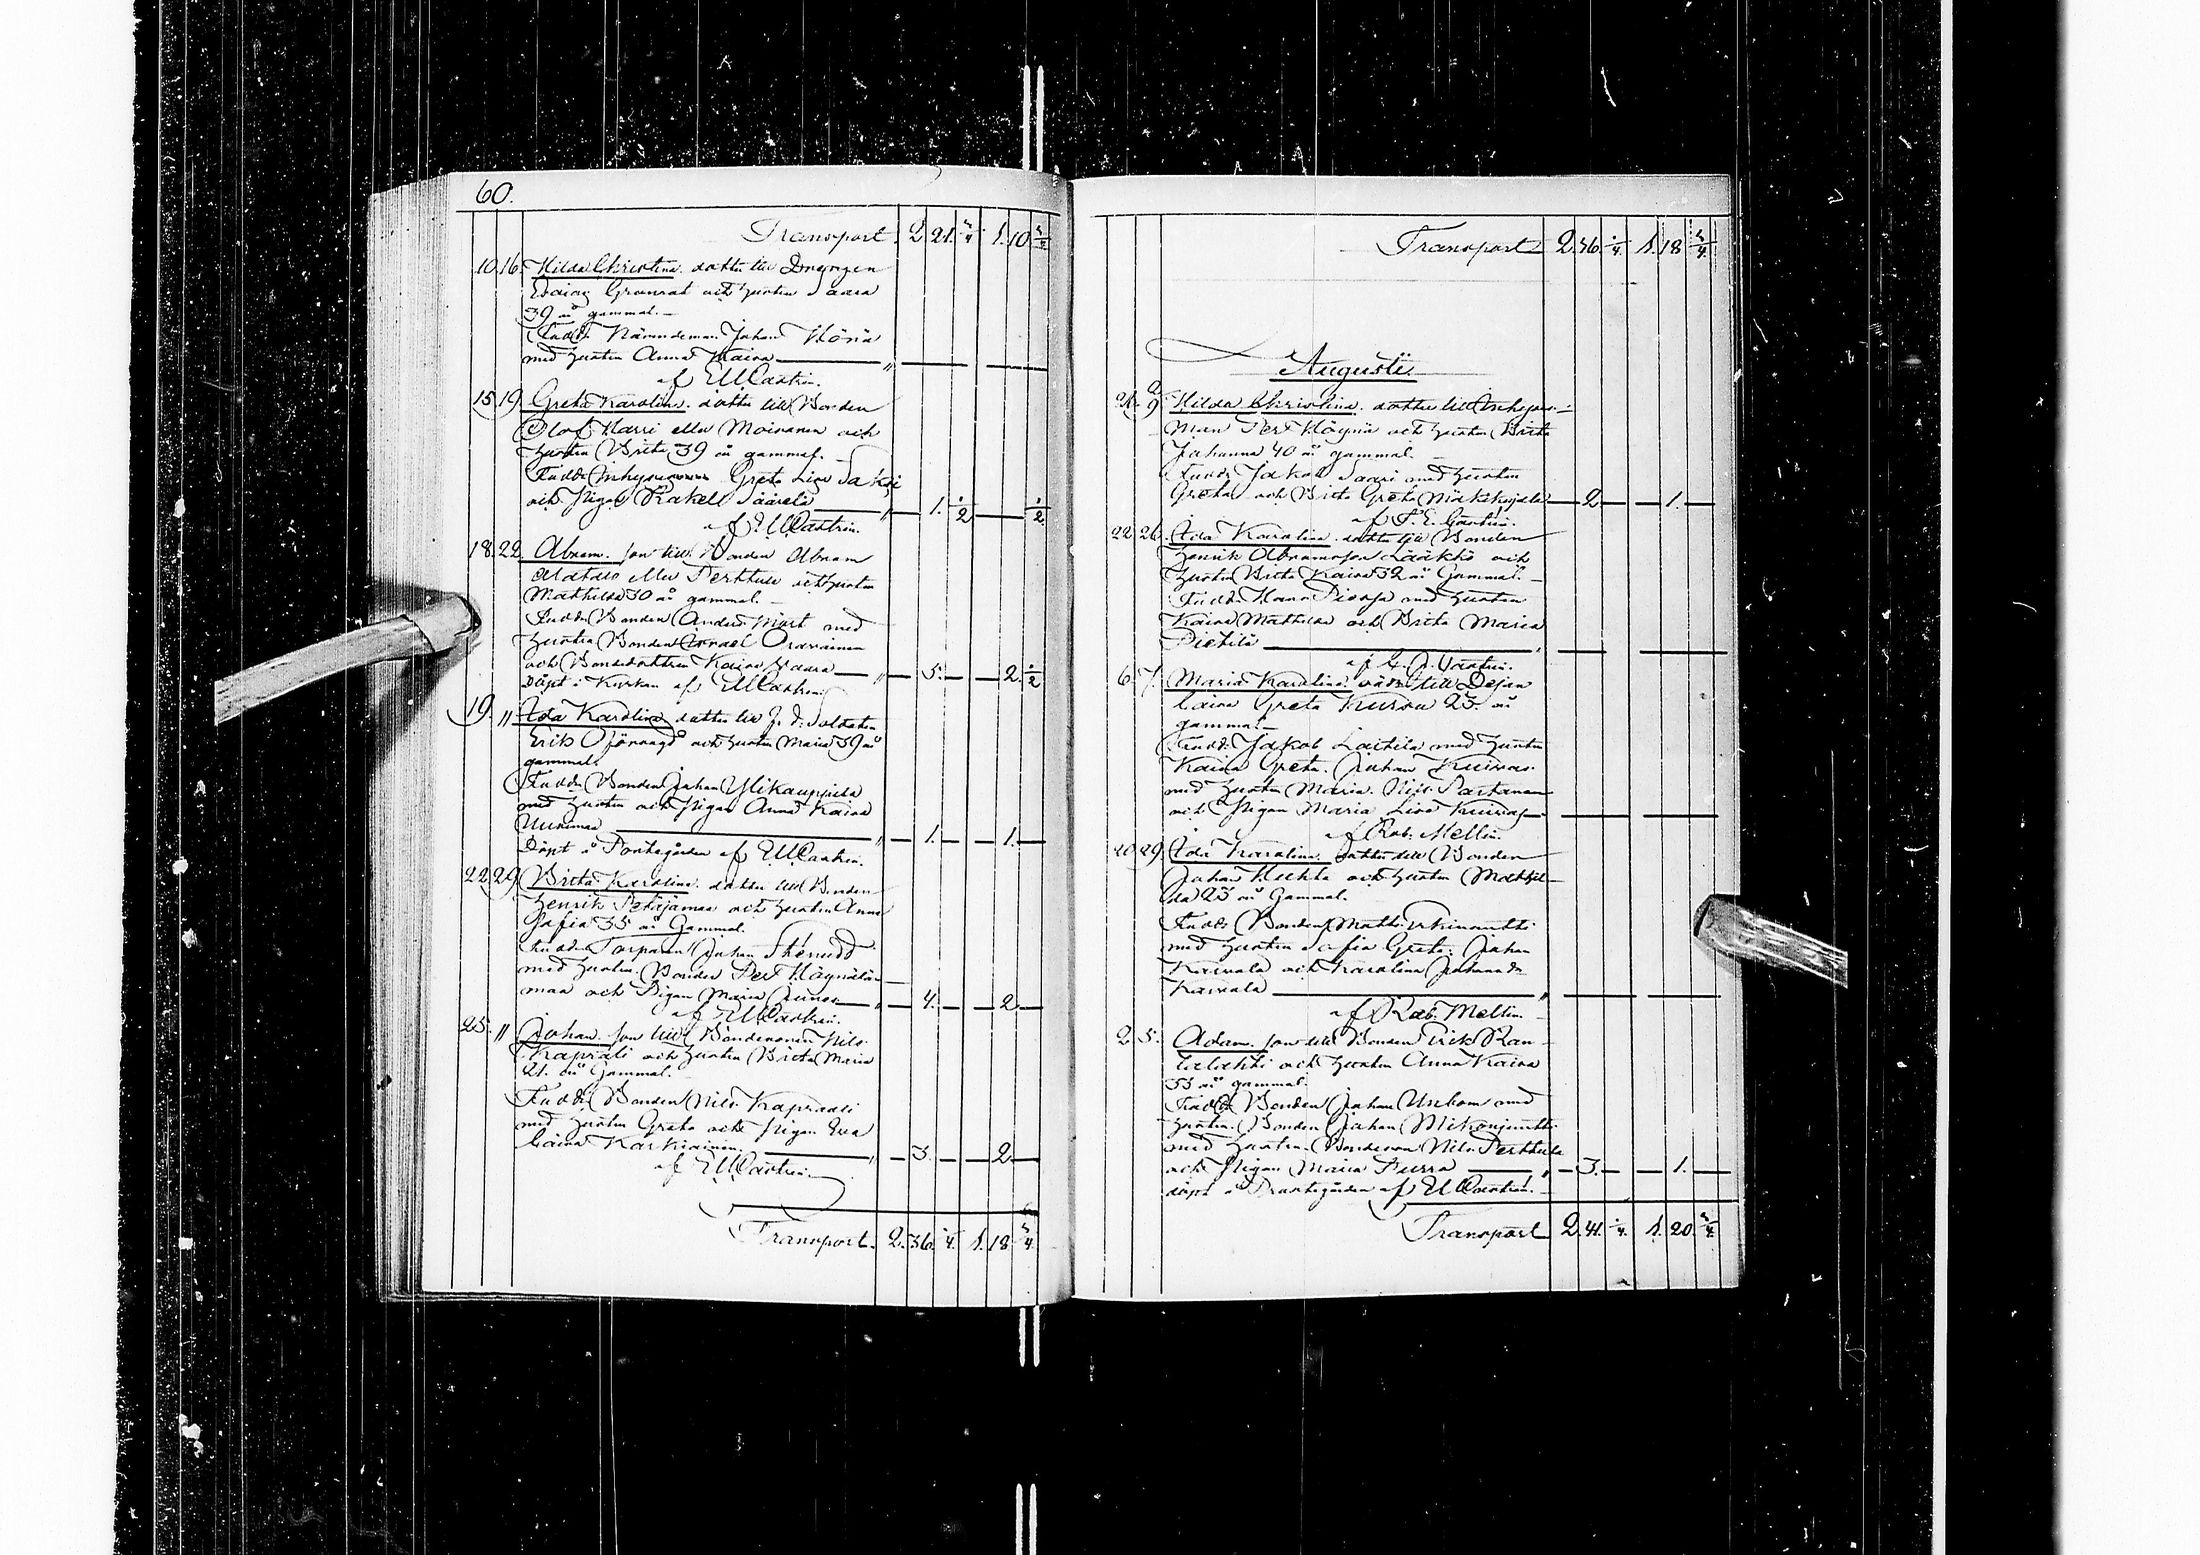 60.
Transport. 2. 21. 1/4 1. 10. 3/4
10. 16. Hilda Christina. dotter till Drengen
Esaias Granrot och hustrun Saara
39 år gammal.
Fadd. Nämndeman Johan Körö
med hustrun Anna Kaisa "
af EMCastrén.
15. 19. Greta Karolina. dotter till Bonden
Olof Harri eller Moinanen och
hustrun Brita 39 år gammal.
Fadd. Greta Lisa
och Pigan Rakel Sääreli " 1. 1/2 1/2
af EMCastrén.
18. 22. Abram. son till Bonden Abram
eller Perttula och hustrun
Mathilda 30 år gammal.
Fadd. Bonden Anders Mört med
hustru Bonden Israel Oravainen
och Bondedottren Kaisa Vaara " 5. 2. 1/2
Döpt i Kyrkan af EMCastrén.
19. " Ida Karolina dotter till f. d. Soldaten
Erik Oförsagd och hustrun Maria 39 år
gammal.
Fadd. Bonden Johan Ylikauppila
med hustrun och Pigan Anna Kaisa
Uusimaa " 1. 1.
Döpt å Prostgården af EMCastrén.
22. 29. Brita Karolina. dotter till Bonden
Henrik Petäjämaa och hustrun Anna
Sofia 35 år Gammal.
Fadd. Torparen Johan Stenudd
med hustrun. Bonden PertKöynälä-
maa och Pigan Maria " 4. 2.
af EMCastrén.
25. " Johan. son till Bondesonen Nils
Kaprali och hustrun Brita Maria
21. år Gammal.
Fadd. Bonden Nils Kaprali
med hustrun Greta och Pigan Eva
Caisa Karkiainen. " 3. 2.
af EMCastrén.
Transport. 2. 36. 1/4. 1. 18. 3/4
Transport 2. 36. 1/4. 1. 18 3/4
Augusti.
9. Hilda Christina. dotter till Inhyses-
man Pert Köynä och hustrun Brita
Johanna 40 år gammal.
Fadd. Jakob Saari med hustrun
Greta och Brita Greta 2. 1.
af
22. 26. Ida Karolina. dotter till Bonden
Henrik Abramsson Lääkkö och
hustrun Brita Kaisa 32 år Gammal.
Fadd. med hustrun
Kaisa Mathilda och Brita Maria
Pietilä "
af
6. 7. Maria Karolina. till Pejan
Caisa Greta 23. år
gammal.
Fadd. Jakob Laitila med hustrun
Kaisa Greta. Johan Kuivas
med hustrun Maria. Nils Partanen
och Pigan Maria Lisa Kuivas
af Rob. Mellin.
29. Ida Karolina. dotter till Bonden
Johan Huhta och hustrun Mathil-
da 23 år Gammal.
Fadd. Bonden Matts
med hustrun Sofia Greta. Johan
Kaivala och Karolina Johanna
Kaivala "
af Rob. Mellin.
2. 5. Adam. son till Bonden Erik Ran-
talahti och hustrun Anna Kaisa
33 år gammal.
Fadd. Bonden Johan Unbom med
hustru. Bonden Johan Mikonjuntti
med hustrun. Bondeson Nils Perttula
och Pigan Maria Purra " 3. 1.
döpt å Prostgården af EMCastrén.
Transport 2. 41. 1/4. 1. 20. 3/4